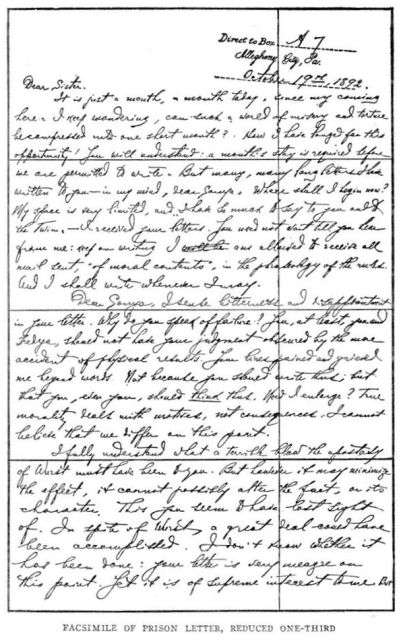 Direct to Box A 7
Allegheny City, Pa.
October 19th, 1892.
Dear Sister:
It is just a month, a month today, since my coming
here. I keep wondering, can such a world of misery and torture
be compressed into one short month? How I have longed for this
opportunity! You will understand: a month's stay is required before
we are permitted to write. But many, many long letters I have
written to you—in my mind, dear Sonya. Where shall I begin now?
My space is very limited, and I have so much to say to you and to
the Twin.—I received your letters. You need not wait till you hear
from me: keep on writing. I am allowed to receive all
mail sent, "of moral contents", in the phraseology of the rules.
And I shall write whenever I may.
Dear Sonya, I sense bitterness and disappointment
in your letter. Why do you speak of failure? You, at least, you and
Fedya, should not have your judgment obscured by the mere
accident of physical results. Your lines pained and grieved
me beyond words. Not because you should write thus; but
that you, even you, should think thus. Need I enlarge? True
morality deals with motives, not consequences. I cannot
believe that we differ on this point.
I fully understand what a terrible blow the apostasy
of Wurst must have been to you. But however it may minimize
the effect, it cannot possibly alter the fact, or its
character. This you seem to have lost sight
of. In spite of Wurst, a great deal could have
been accomplished. I don't know whether it
has been done: your letter is very meagre on
this point. Yet it is of supreme interest to me. But
FACSIMILE OF PRISON LETTER, REDUCED ONE-THIRD